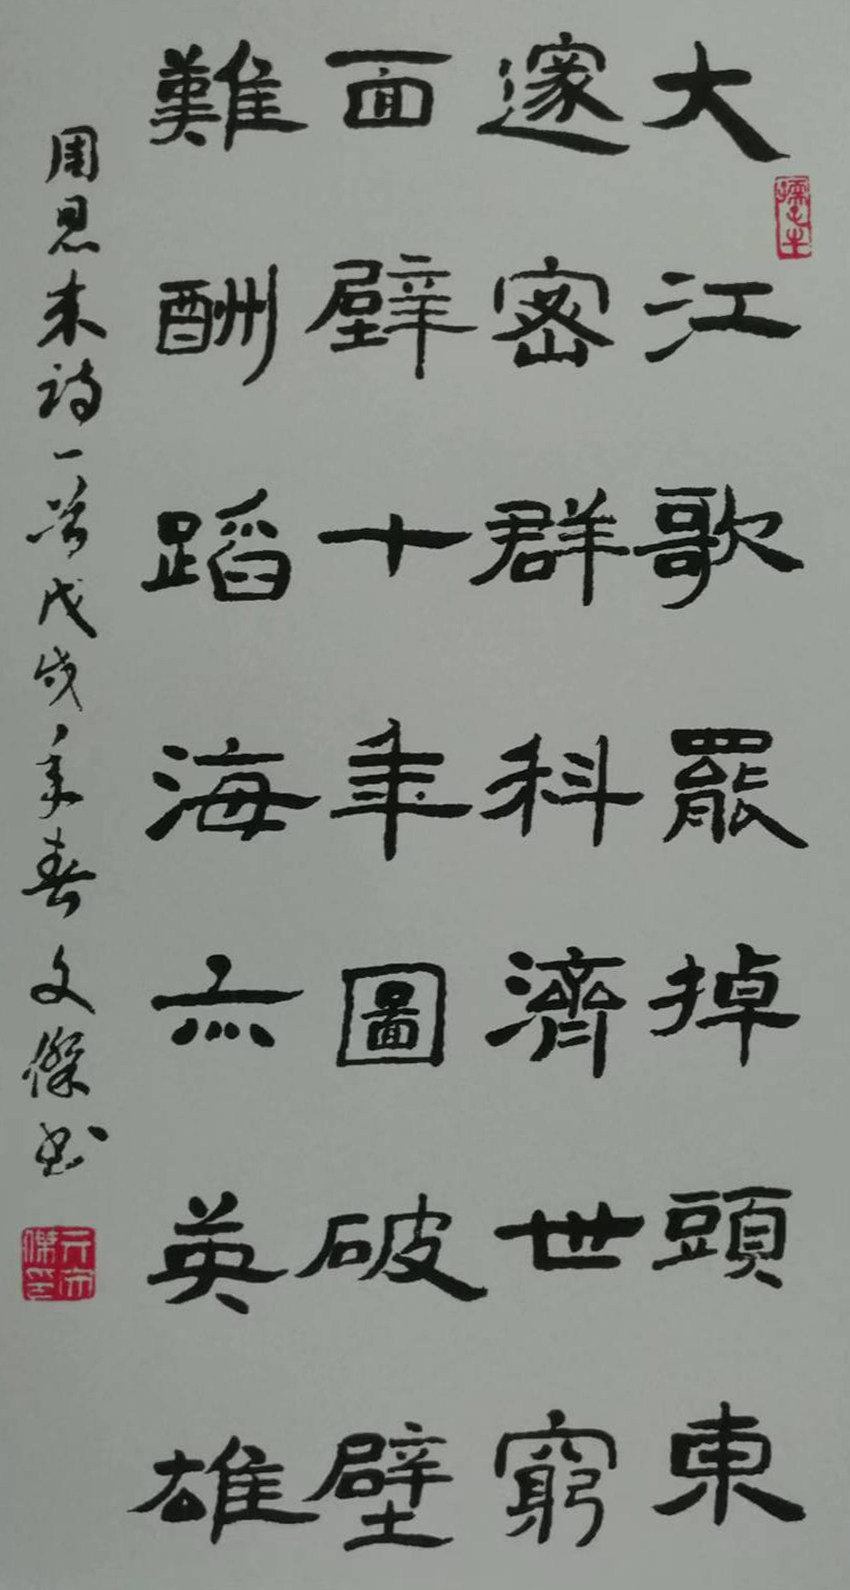 大江歌罷掉頭東
邃密群科濟世窮
面壁十年圖破壁
難酬蹈海亦英雄
周恩来诗一首戊戌年春文傑书